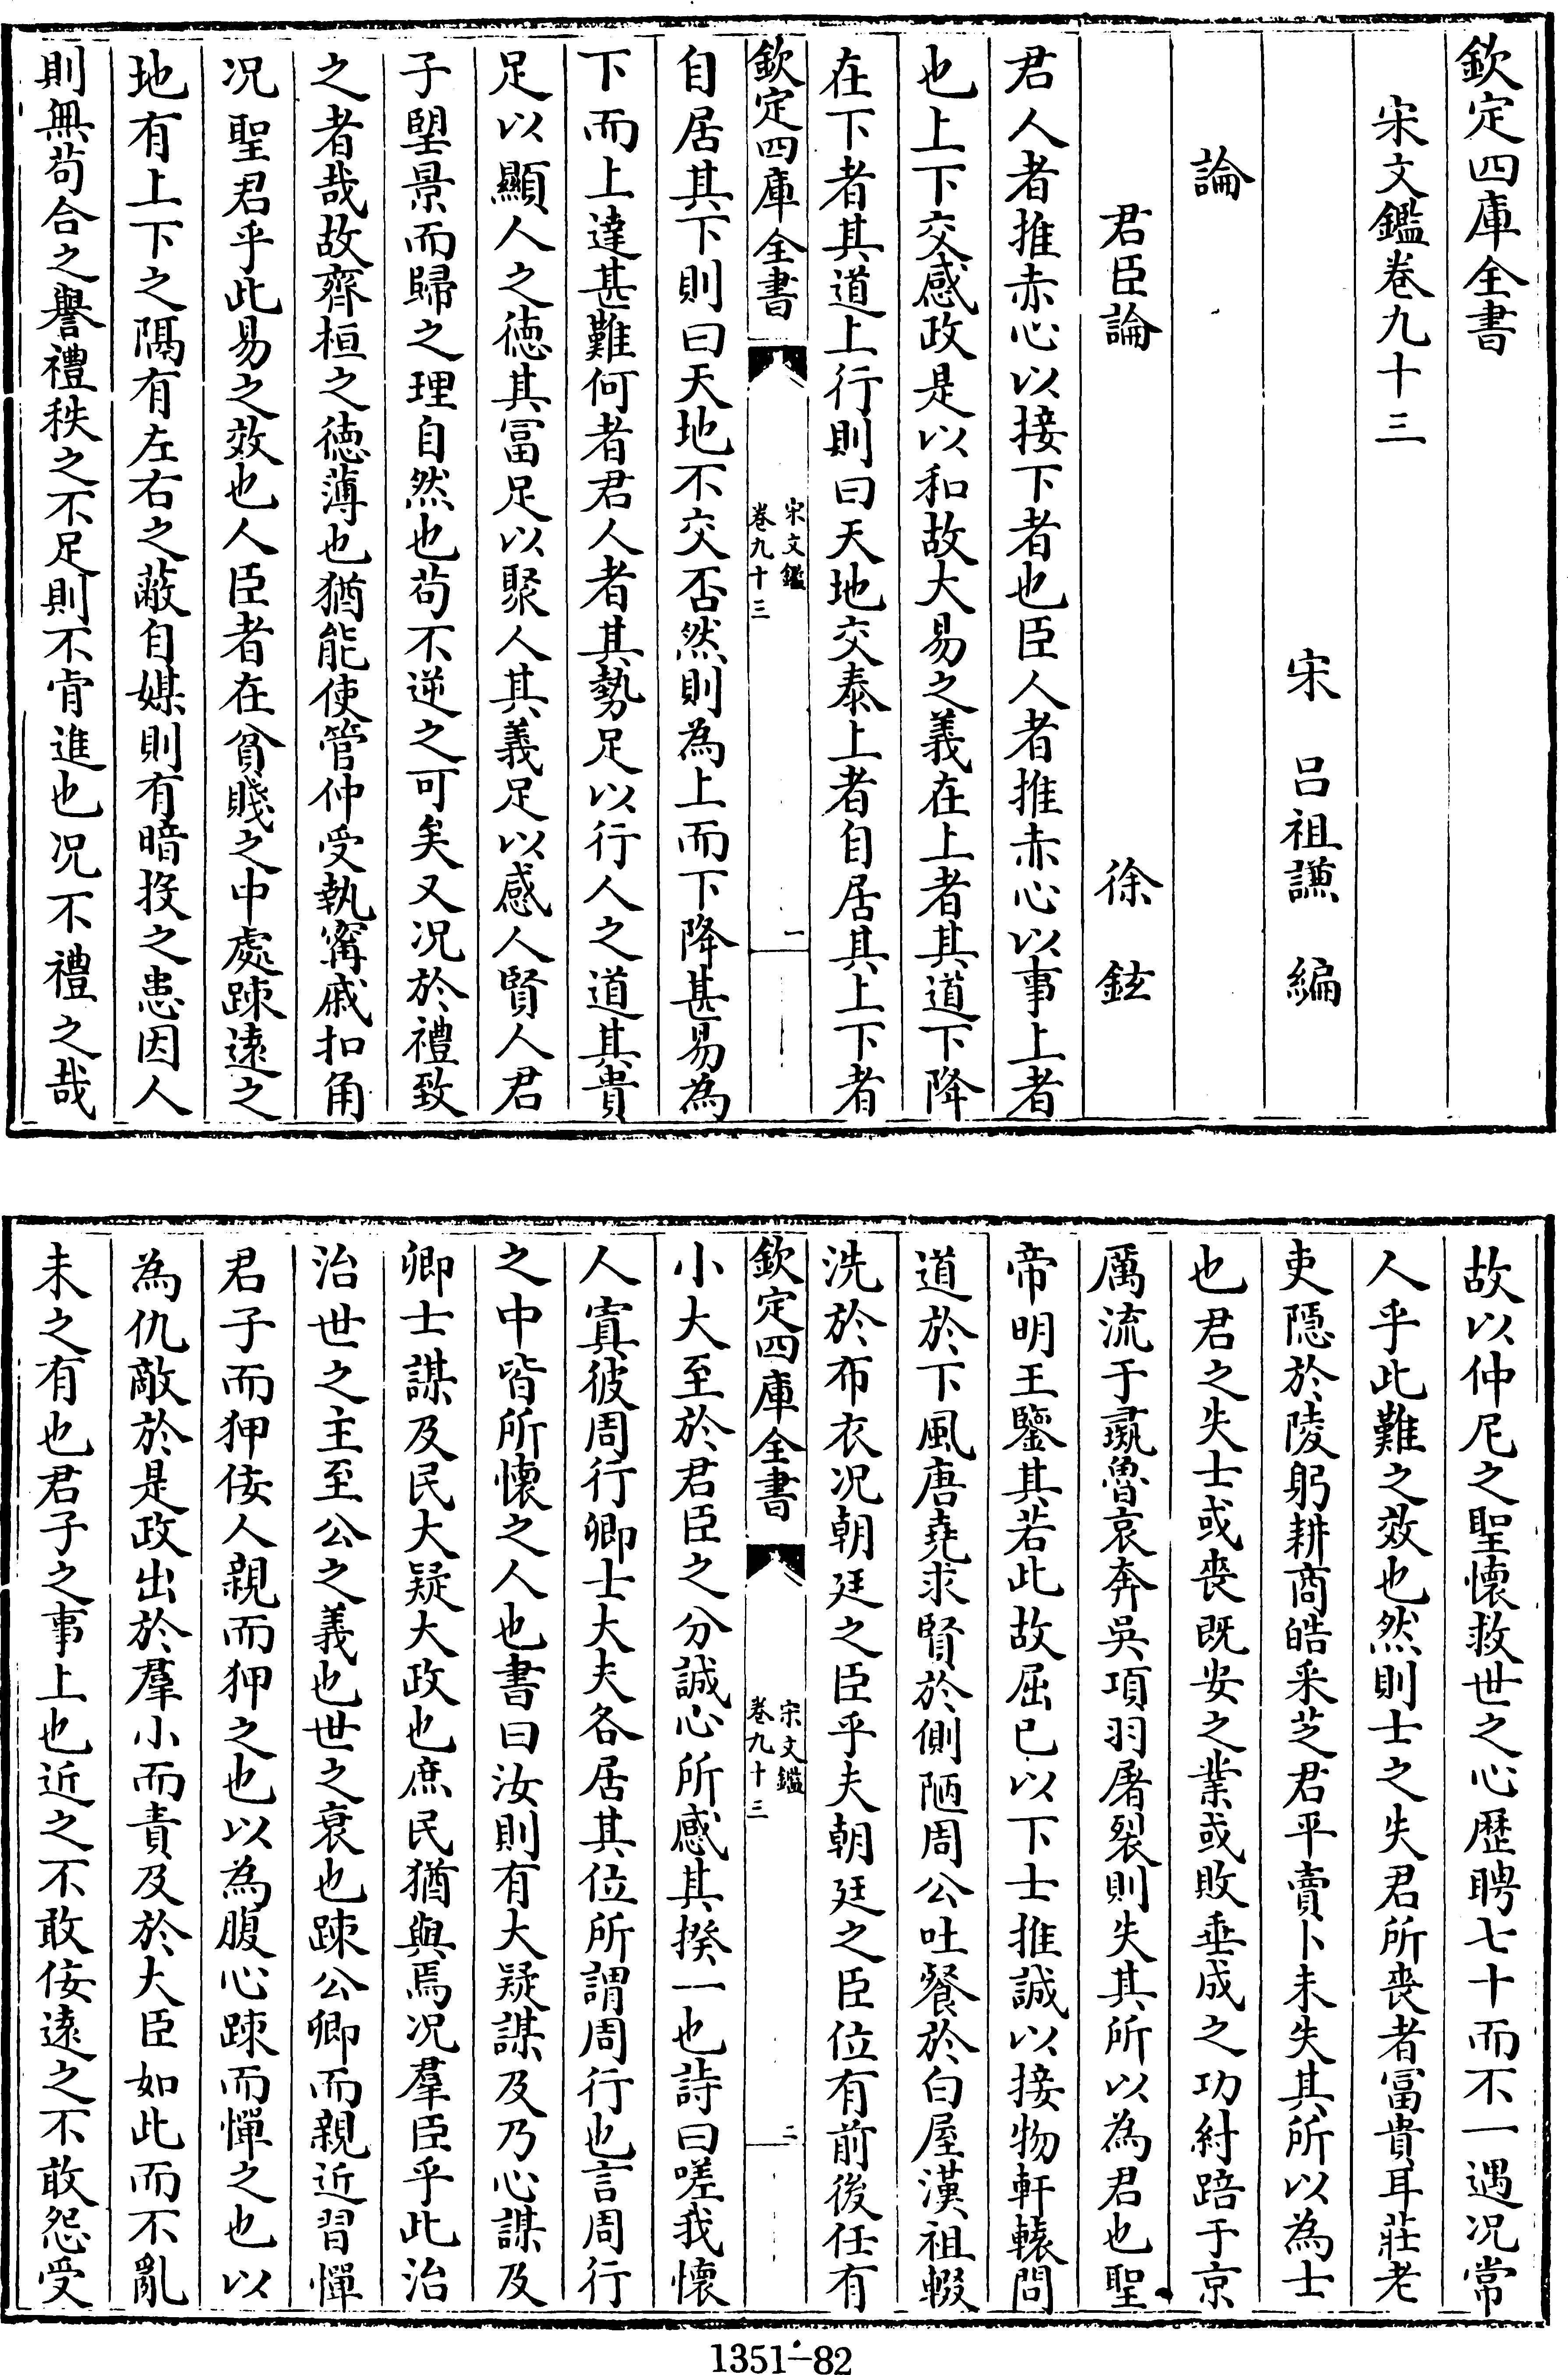 欽定四庫全書
宋文鑑卷九十三
宋　呂祖謙　編
論
君臣論　徐鉉
君人者推赤心以接下者也臣人者推赤心以事上者
也上下交感政是以和故大易之義在上者其道下降
在下者其道上行則曰天地交泰上者自居其上下者
欽定四庫全書
宋文鑑
卷九十三
一
自居其下則曰天地不交否然則為上而下降甚易為
下而上達甚難何者君人者其勢足以行人之道其貴
足以顯人之德其富足以聚人其義足以感人賢人君
子朢景而歸之理自然也苟不逆之可矣又况於禮致
之者哉故齊桓之徳薄也猶能使管仲受執甯戚扣角
况聖君乎此易之效也人臣者在貧賤之中處踈逺之
地有上下之隔有左右之蔽自媒則有暗投之患因人
則無苟合之譽禮秩之不足則不肯進也况不禮之哉
故以仲尼之聖懷救世之心歷聘七十而不一遇况常
人乎此難之效也然則士之失君所喪者富貴耳莊老
吏隠於陵躬耕商皓采芝君平賣卜未失其所以為士
也君之失士或喪既安之業或敗垂成之功紂踣于京
厲流于彘魯哀奔吳項羽屠裂則失其所以為君也聖
帝明王鑒其若此故屈已以下士推誠以接物軒轅問
道於下風唐堯求賢於側陋周公吐餐於白屋漢祖輟
洗於布衣况朝廷之臣乎夫朝廷之臣位有前後任有
欽定四庫全書
宋文鑑
卷九十三
二
小大至於君臣之分誠心所感其揆一也詩曰嗟我懷
人寘彼周行卿士大夫各居其位所謂周行也言周行
之中皆所懷之人也書曰汝則有大疑謀及乃心謀及
卿士謀及民大疑大政也庶民猶與焉况羣臣乎此治
治世之主至公之義也世之衰也踈公卿而親近習憚
君子而狎佞人親而狎之也以為腹心踈而憚之也以
為仇敵於是政出於羣小而責及於大臣如此而不亂
未之有也君子之事上也近之不敢佞逺之不敢怨受
1351-82